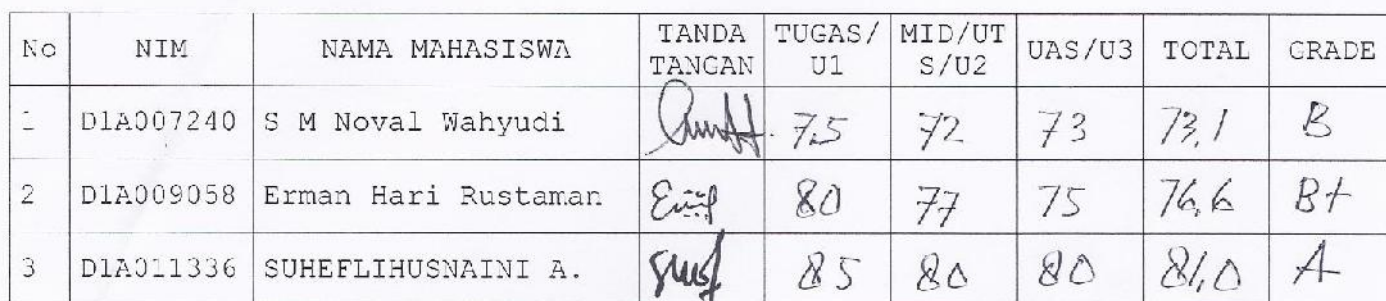 No NIM NAMA MAHASISWA TANDA TANGAN TUGAS/U1 MID/UTS/U2 UAS/U3 TOTAL GRADE
1 D1A007240 S M Noval Wahyudi 75 72 73 73,1 B
2 D1A009058 Erman Hari Rustaman 80 77 75 76,6 B+
3 D1A011336 SUHEFLIHUSNAINI A. 85 80 80 81,0 A